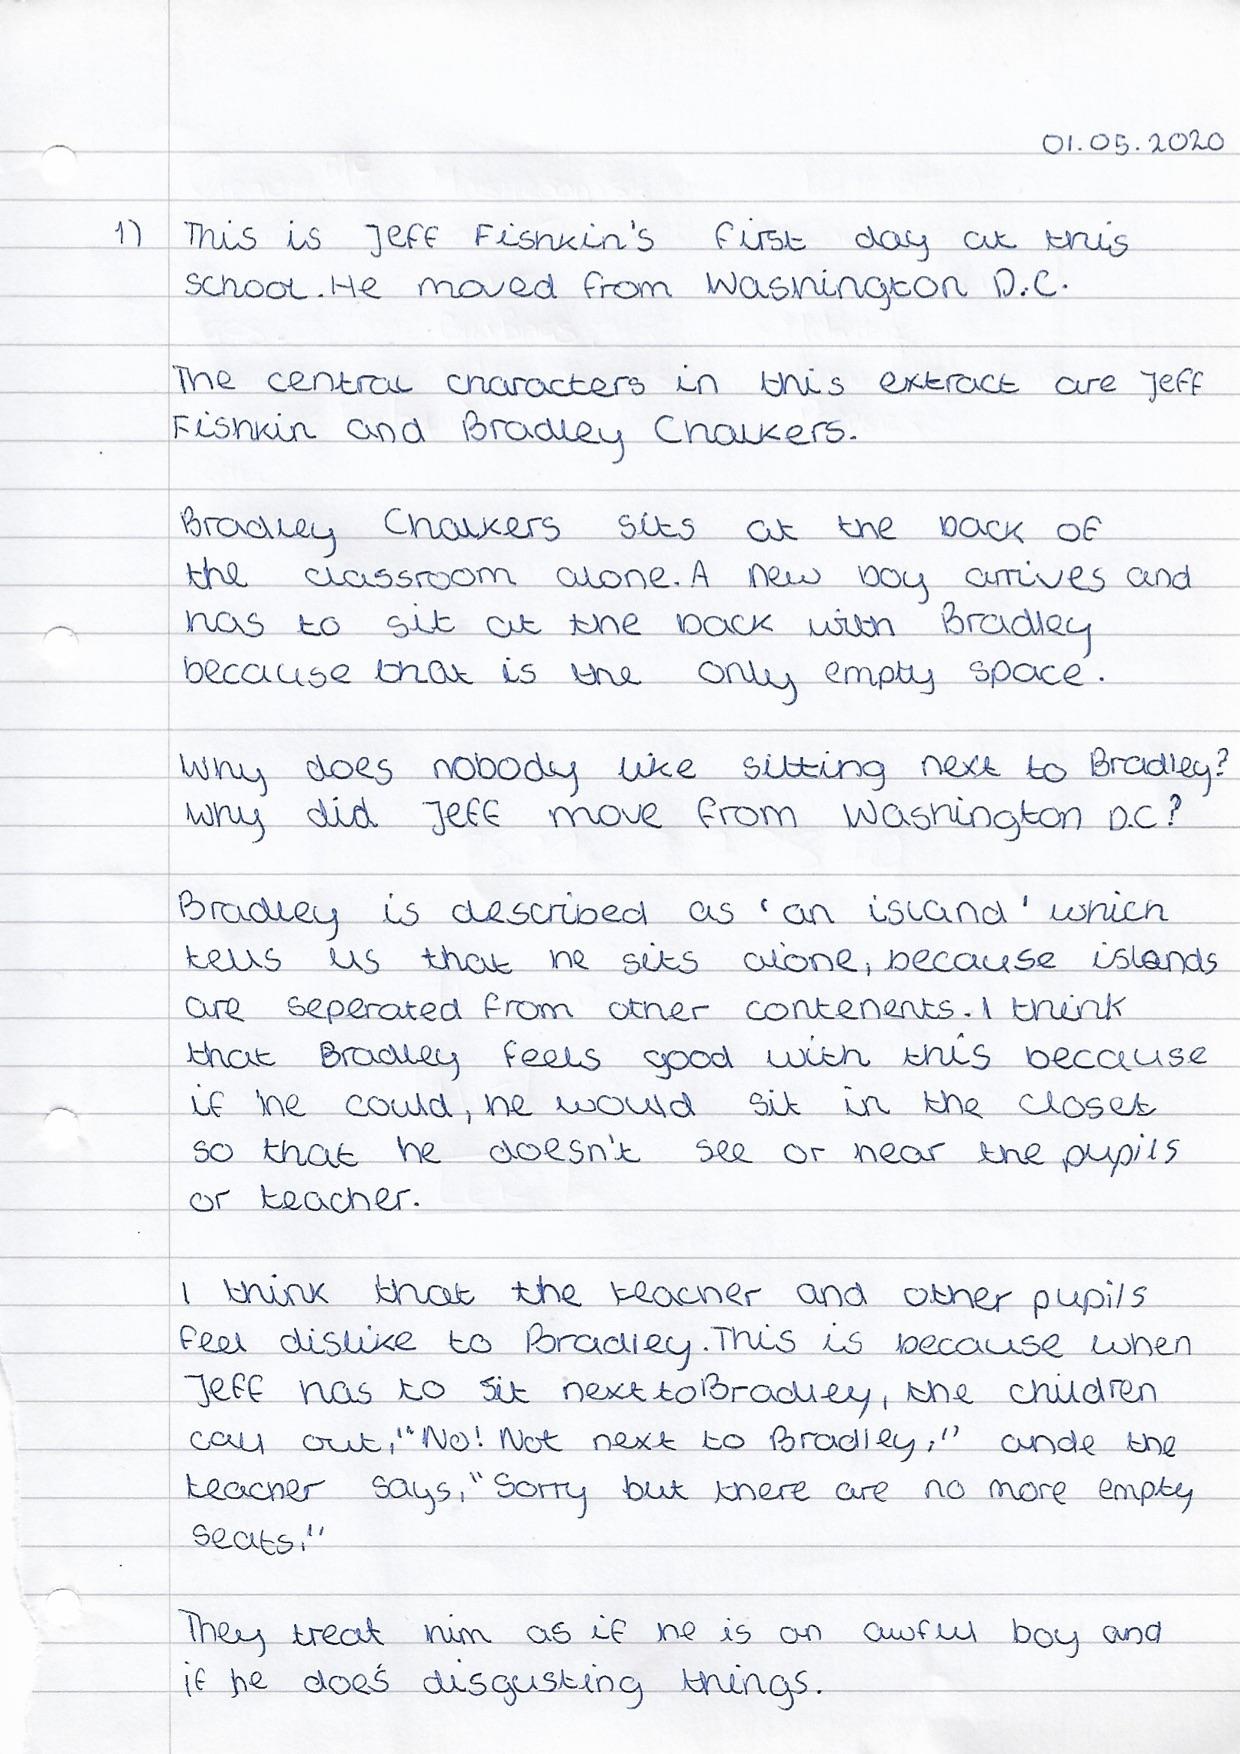 01.05.2020
1) This is Jeff Fishkin's first day at this
school. He moved from Washington D.C.
The central characters in this extract are Jeff
Fishkin and Bradley Chalkers.
Bradley Chalkers sits at the back of
the classroom alone. A new boy arrives and
has to sit at the back with Bradley
because that is the only empty space.
Why does nobody like sitting next to Bradley?
Why did Jeff move from Washington D.C?
Bradley is described as 'an island' which
tells us that he sits alone, because islands
are seperated from other contenents. I think
that Bradley feels good with this because
if he could, he would sit in the closet
so that he doesn't see or hear the pupils
or teacher.
I think that the teacher and other pupils
feel dislike to Bradley. This is because when
Jeff has to sit next to Bradley, the children
call out, "No! Not next to Bradley," ande the
teacher says, "Sorry but there are no more empty
seats."
They treat him as if he is an awful boy and
if he does disgusting things.